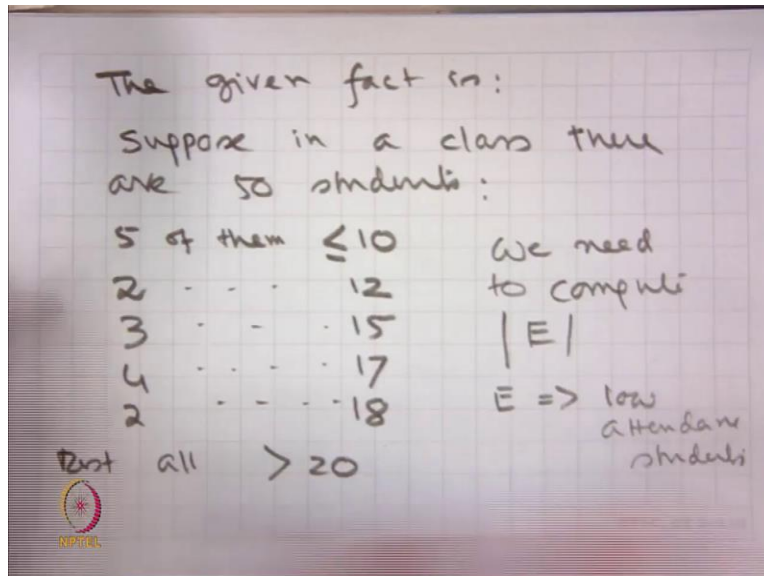 The given fact is:
Suppose in a class there
are 50 students:
5 of them ≤10
2 - - - 12
3 - - - 15
4 - - - - 17
2 - - - - 18
Rest all > 20
We need
to compute
|E|
E => low
attendance
students
NPTEL